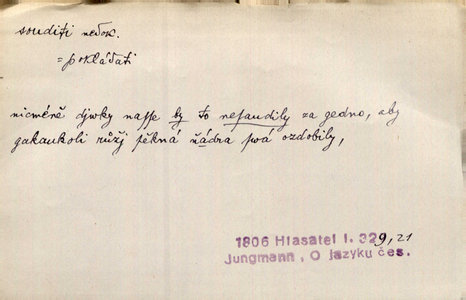 souditi nedok.
= pokládati
nicméně djwky nasse by to nesaudily za gedno, aby
gakaukoli růžj pěkná ňádra swá ozdobily,
1806 Hlasatel I. 329, 21
Jungmann, O jazyku čes.